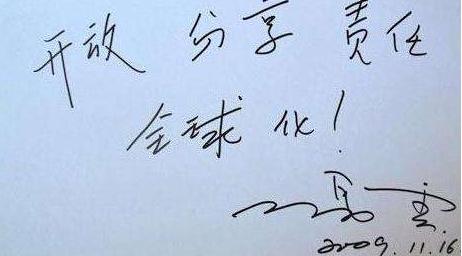 开放 分享 责任
全球化！
马云
2009.11.16